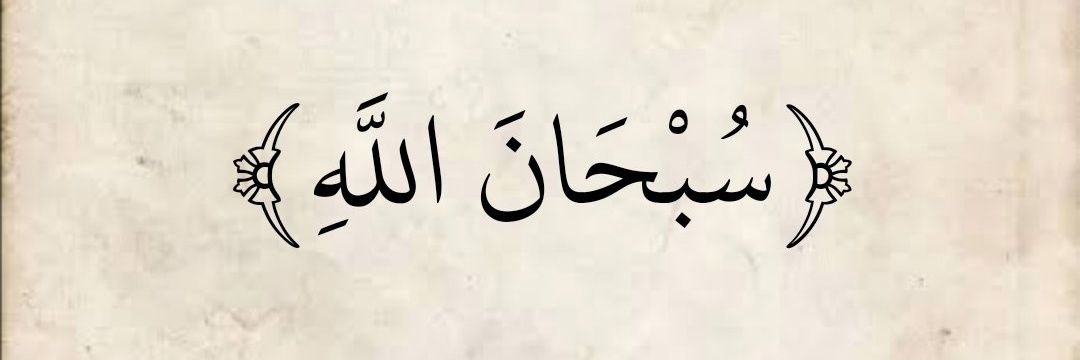 ﴿ سُبْحَانَ اللَّهِ ﴾